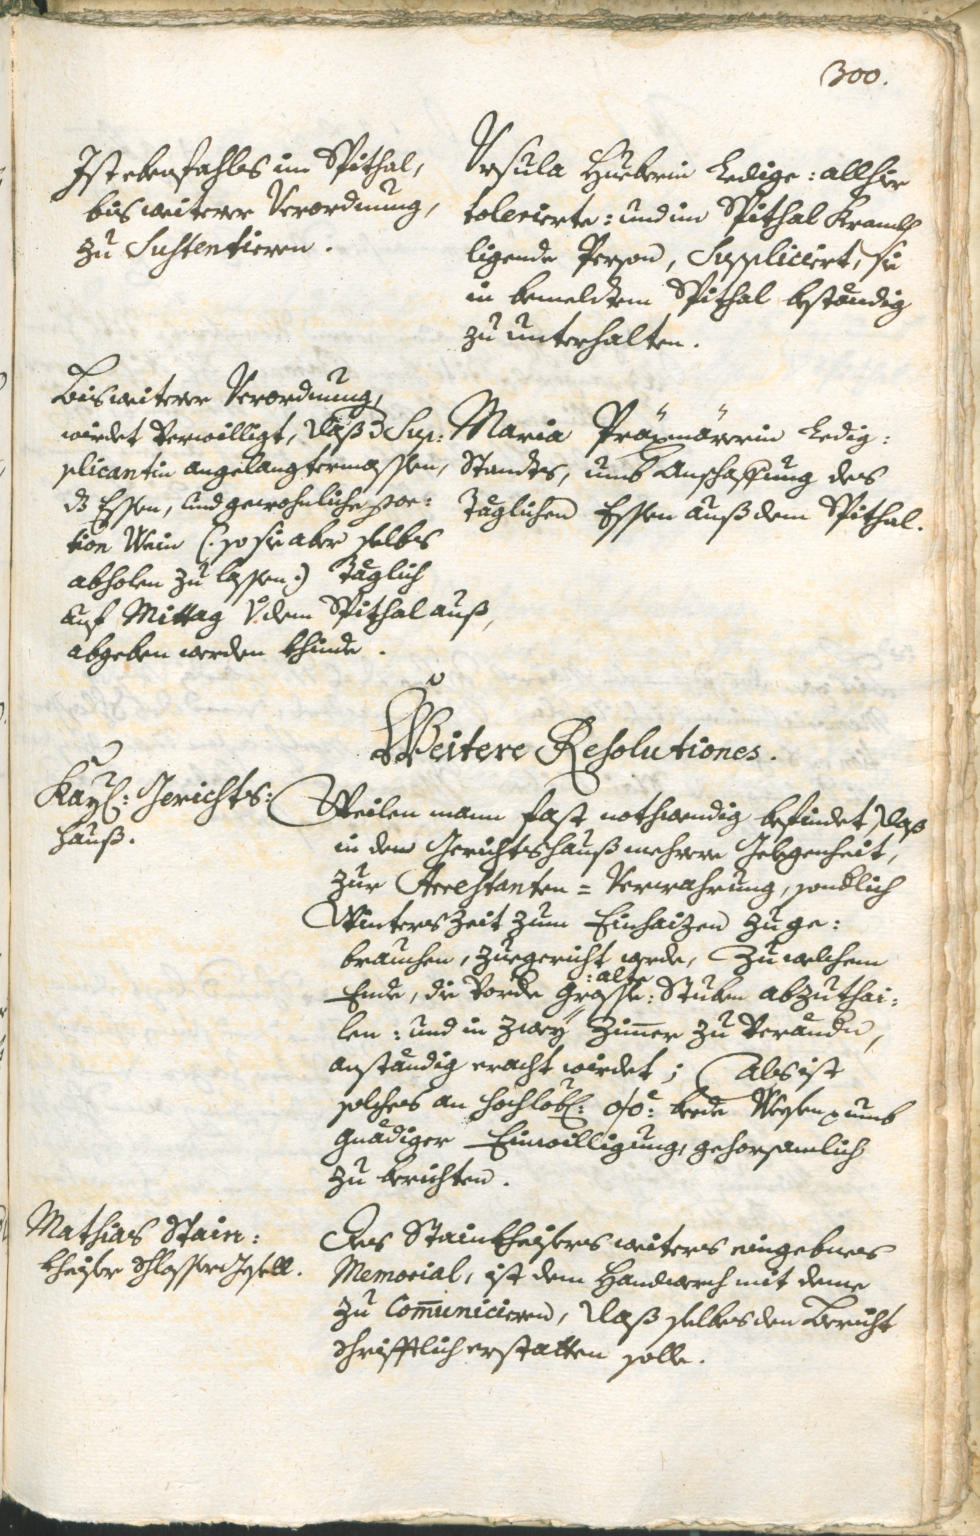 300.
Ist ebenfahls im Spithal,
bis weiterer Verordnung,
zu Sustentieren.
Vrsula Hueberin Ledige: allhie
tolerierte: und im Spithal Kranckh
ligende Person, Suppliciert, sie
in bemeldtem Spithal beständig
zu unterhalten.
Bis weiterer Verordnung,
wirdet verwilligt, daß d Sup:
plicantin angelangtermassen,
dz Essen, und gewohnliche por:
tion Wein (: so sie aber selbs
abholen zu lassen:) Täglich
auf Mittag v. dem Spithal auß,
abgeben werden khünde.
Maria Präxmärerin Ledig:
Standts, umb Anschaffung des
Täglichen Essen auß dem Spithal.
Weitere Resolutiones.
Kayl: Gerichts:
hauß.
Weilen mann fast nothwendig befindet, daß
in dem Gerichtshauß mehrere Gelegenheit,
zur Arrestanten = Verwahrung, sondlich
Winterszeit zum Einhaizen zu ge:
brauchen, zuegericht werde, Zu welchem
Ende, die vorde grosse :alte: Stuben abzuthai:
len: und in zwey Zimer zu verändn,
anständig eracht wirdet; Als ist
solches an hochlöbl: o/ö: beede Wesen umb
gnädiger Einwilligung, gehorsamlich
zu berichten.
Mathias Stain:
kheiser Schlosser Gsell.
Des Stainkheisers weiters eingebnes
Memorial, ist dem Handwerch mit deme
zu Comunicieren, daß selbes den Bericht
schrifftlich erstatten solle.